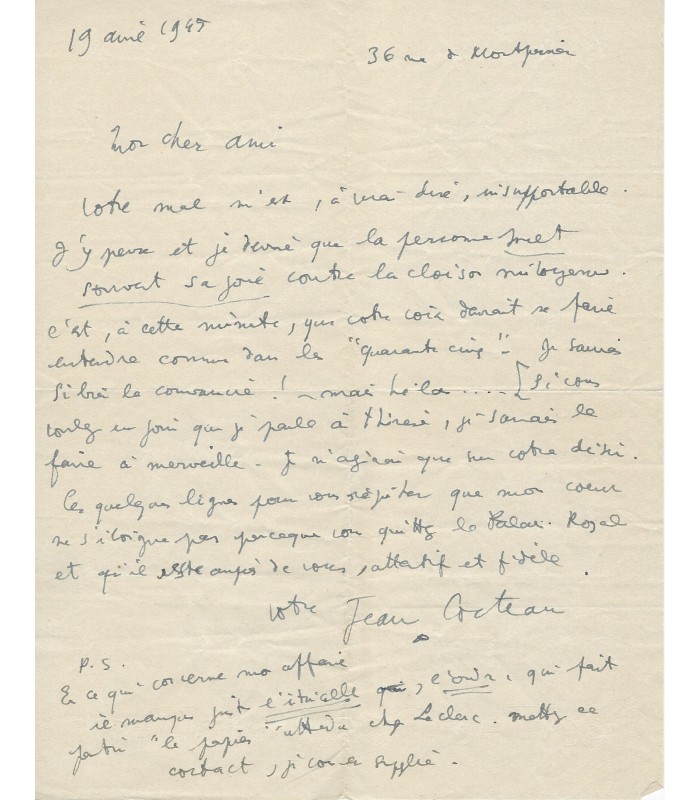 19 avril 1945
36 rue de Montpensier
Mon cher ami
Votre mal m'est, à vrai dire, insupportable.
J'y pense et je devine que la personne met
souvent sa joue contre la cloison mitoyenne.
C'est, à cette minute, que votre voix devrait se faire
entendre comme dans les "quarante cinq". Je saurais
si bien la convaincre ! - mais hélas .... [ Si vous
voulez un jour que je parle à thérèse, je saurais le
faire à merveille - Je n'agirai que sur votre désir.
Ces quelques lignes pour vous répéter que mon coeur
ne s'éloigne pas parceque vous quittez le Palais. Royal
et qu'il reste auprès de vous, attentif et fidèle.
votre Jean Cocteau
P.S.
En ce qui concerne mon affaire
il manque juste l'étincelle, l'ordre qui fait
partir "le papier" attendu chez Leclerc. mettez ce
contact, je vous en supplie.